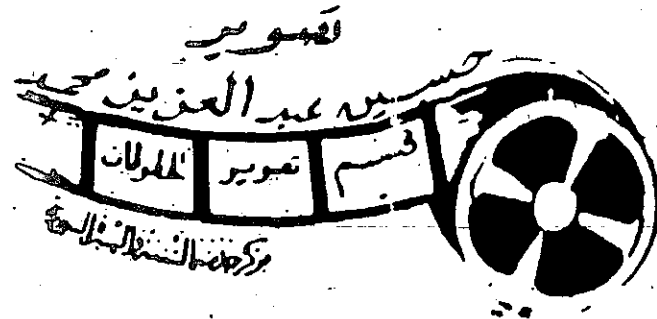 تصوير
حسين عبد العزيز محمد
قسم تصوير المخطوطات
مركز خدمة السنة والسيرة النبوية